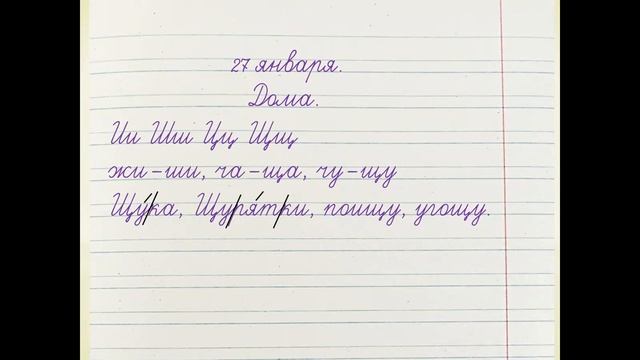 27 января.
Дома.
Ии Шш Цц Щщ
жи-ши, ча-ща, чу-щу
Щу́|ка, Щу|ря́т|ки, поищу, угощу.